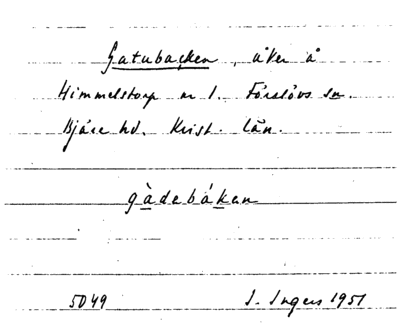 Gatubacken, åker å
Himmelstorp nr 1. Förslövs sn.
Bjäre hd. Krist. län.
gàdebákan
5049 I. Ingers 1951